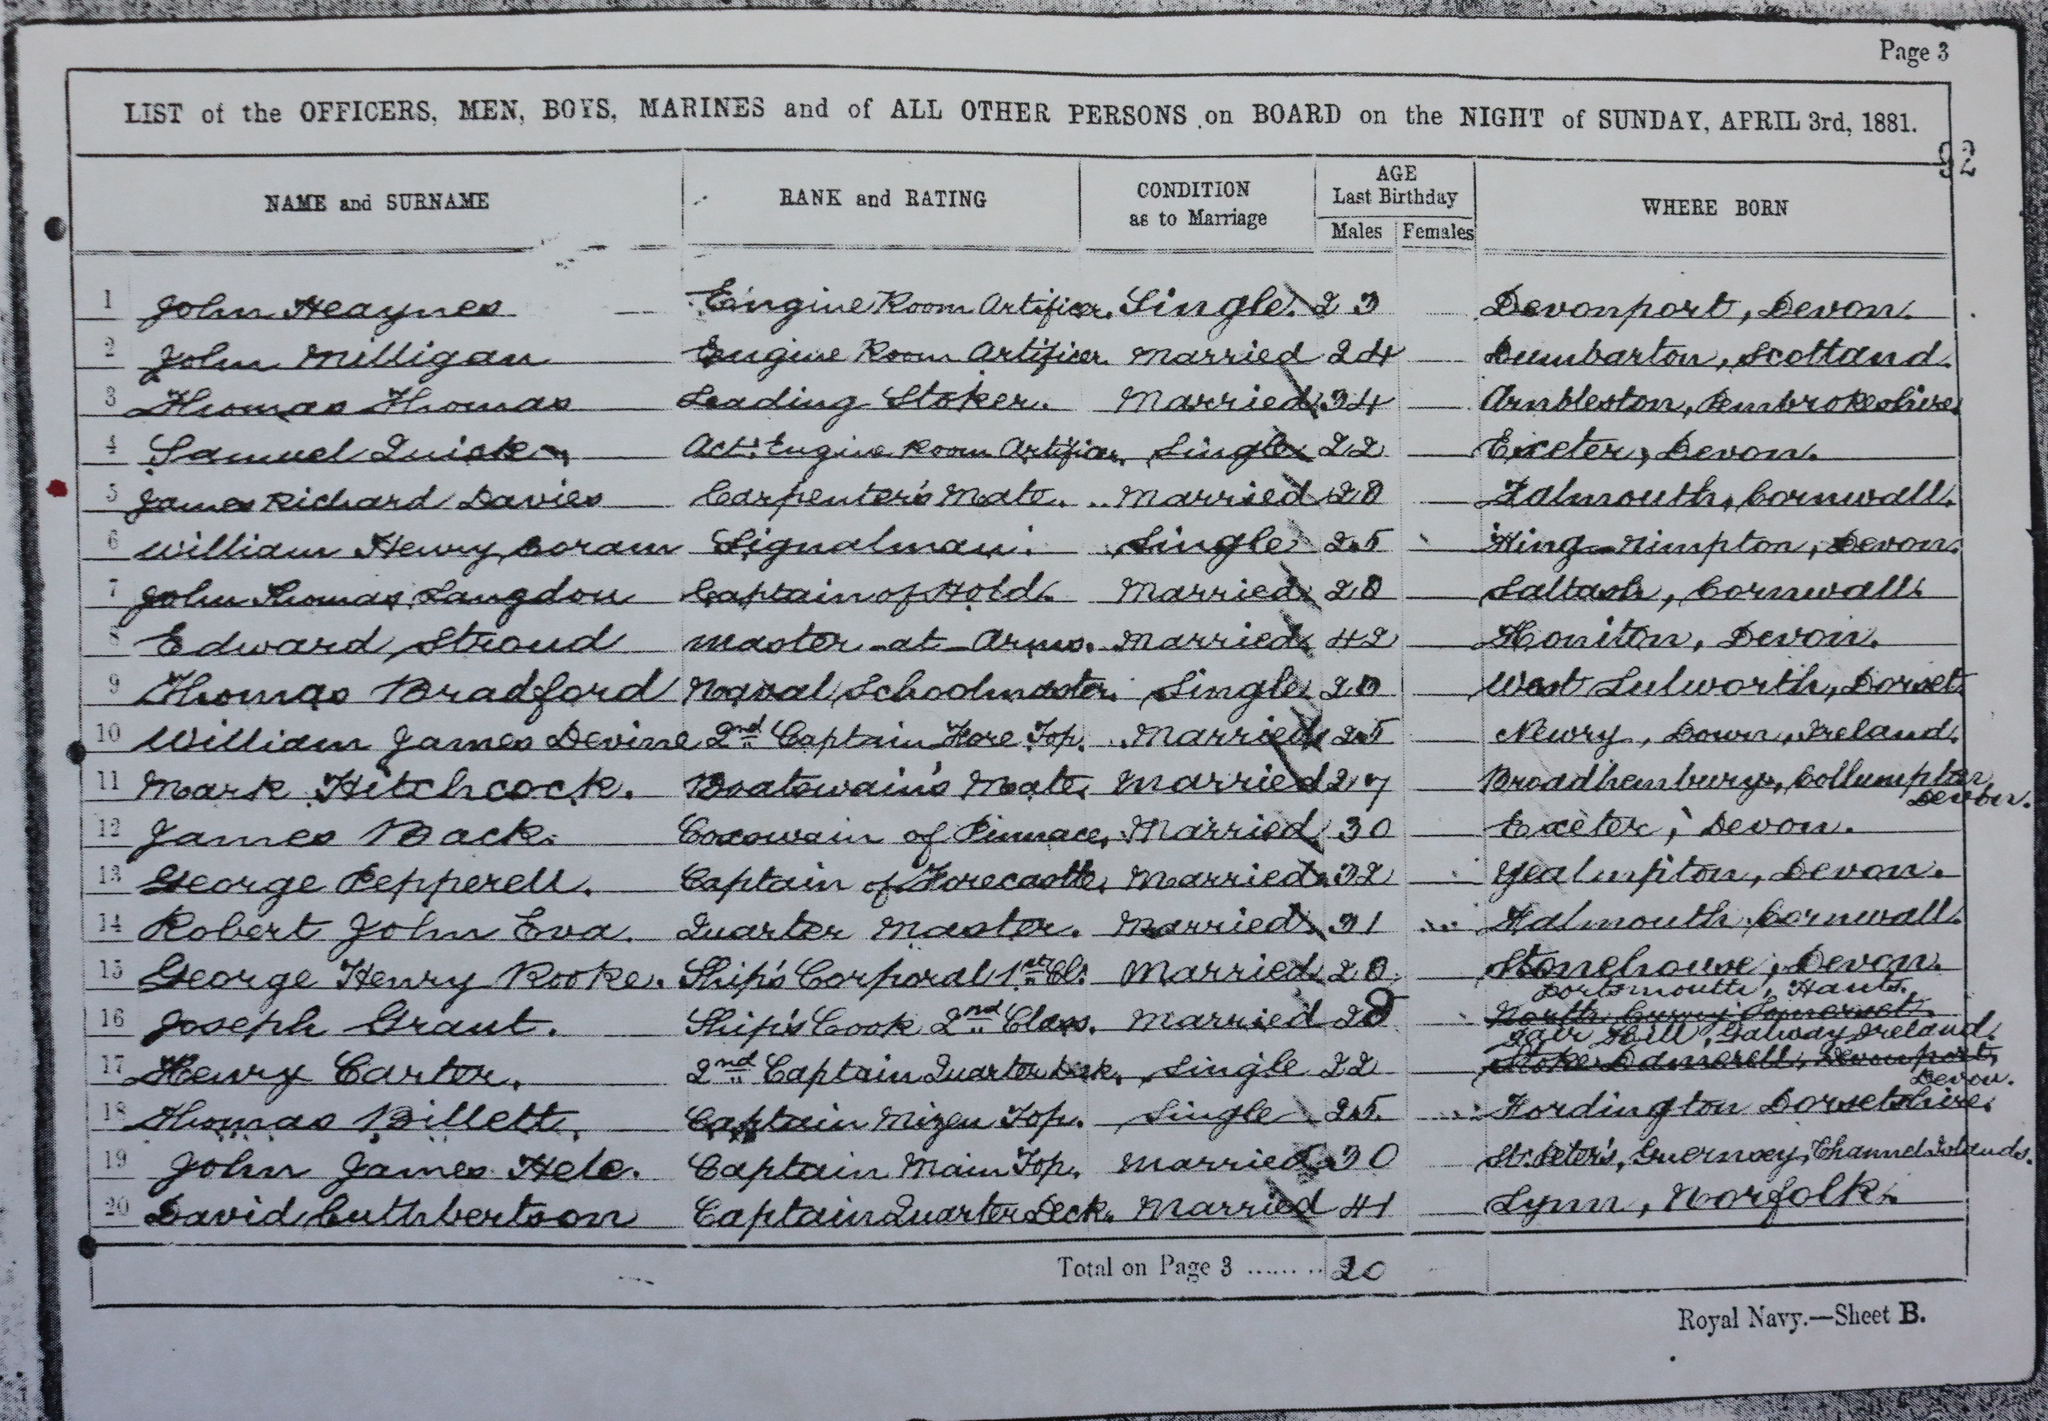 Page 3
LIST of the OFFICERS, MEN, BOYS, MARINES and of ALL OTHER PERSONS on BOARD on the NIGHT of SUNDAY, APRIL 3rd, 1881.
92
NAME and SURNAME RANK and RATING CONDITION as to Marriage AGE Last Birthday Males Females WHERE BORN
1 John Heaynes Engine Room Artificer. Single. 23 Devonport, Devon.
2 John Milligan Engine Room Artificer Married 24 Dumbarton, Scotland.
3 Thomas Thomas Leading Stoker. Married 34 Ambleston, Pembrokeshire
4 Samuel Quick Actg Engine Room Artificer. Single 22 Exeter, Devon.
5 James Richard Davies Carpenter's Mate. Married Falmouth, Cornwall.
6 William Henry Coram Signalman. Single 25 Nimpton, Devon.
7 John Thomas Langdon Captain of Hold. Married Saltash, Cornwall.
8 Edward Stroud Master at Arms. Married 42 Honiton, Devon.
9 Thomas Bradford Naval Schoolmaster. Single West Lulworth, Dorset.
10 William James Devine 2nd Captain Fore Top. Married 25 Newry, Down, Ireland.
11 Mark Hitchcock. Boatswain's Mate. Married 27 Broadhembury, Collumpton
Devon.
12 James Back. Coxswain of Pinnace, Married 30 Exeter, Devon.
13 George Pepperell. Captain of Forecastle, Married 32 Yealmpton, Devon.
14 Robert John Eva. Quarter Master. Married 31 Falmouth, Cornwall.
15 George Henry Rooke. Ship's Corporal 1st Cl. Married Stonehouse, Devon.
Portsmouth, Hants.
16 Joseph Grant. Ship's Cook 2nd Class. Married 28 North Curry, Somerset.
Hill, Galway, Ireland.
17 Henry Carter. 2nd Captain Quarter Deck. Single 22 Stoke Damerell, Devonport,
Devon.
18 Thomas Billett. Captain Mizen Top. Single 25 Fordington Dorsetshire.
19 John James Hele. Captain Main Top. Married 30 St. Peter's, Guernsey, Channel Islands.
20 David Cuthbertson Captain Quarter Deck. Married 41 Lynn, Norfolk.
Total on Page 3 ........ 20
Royal Navy.—Sheet B.